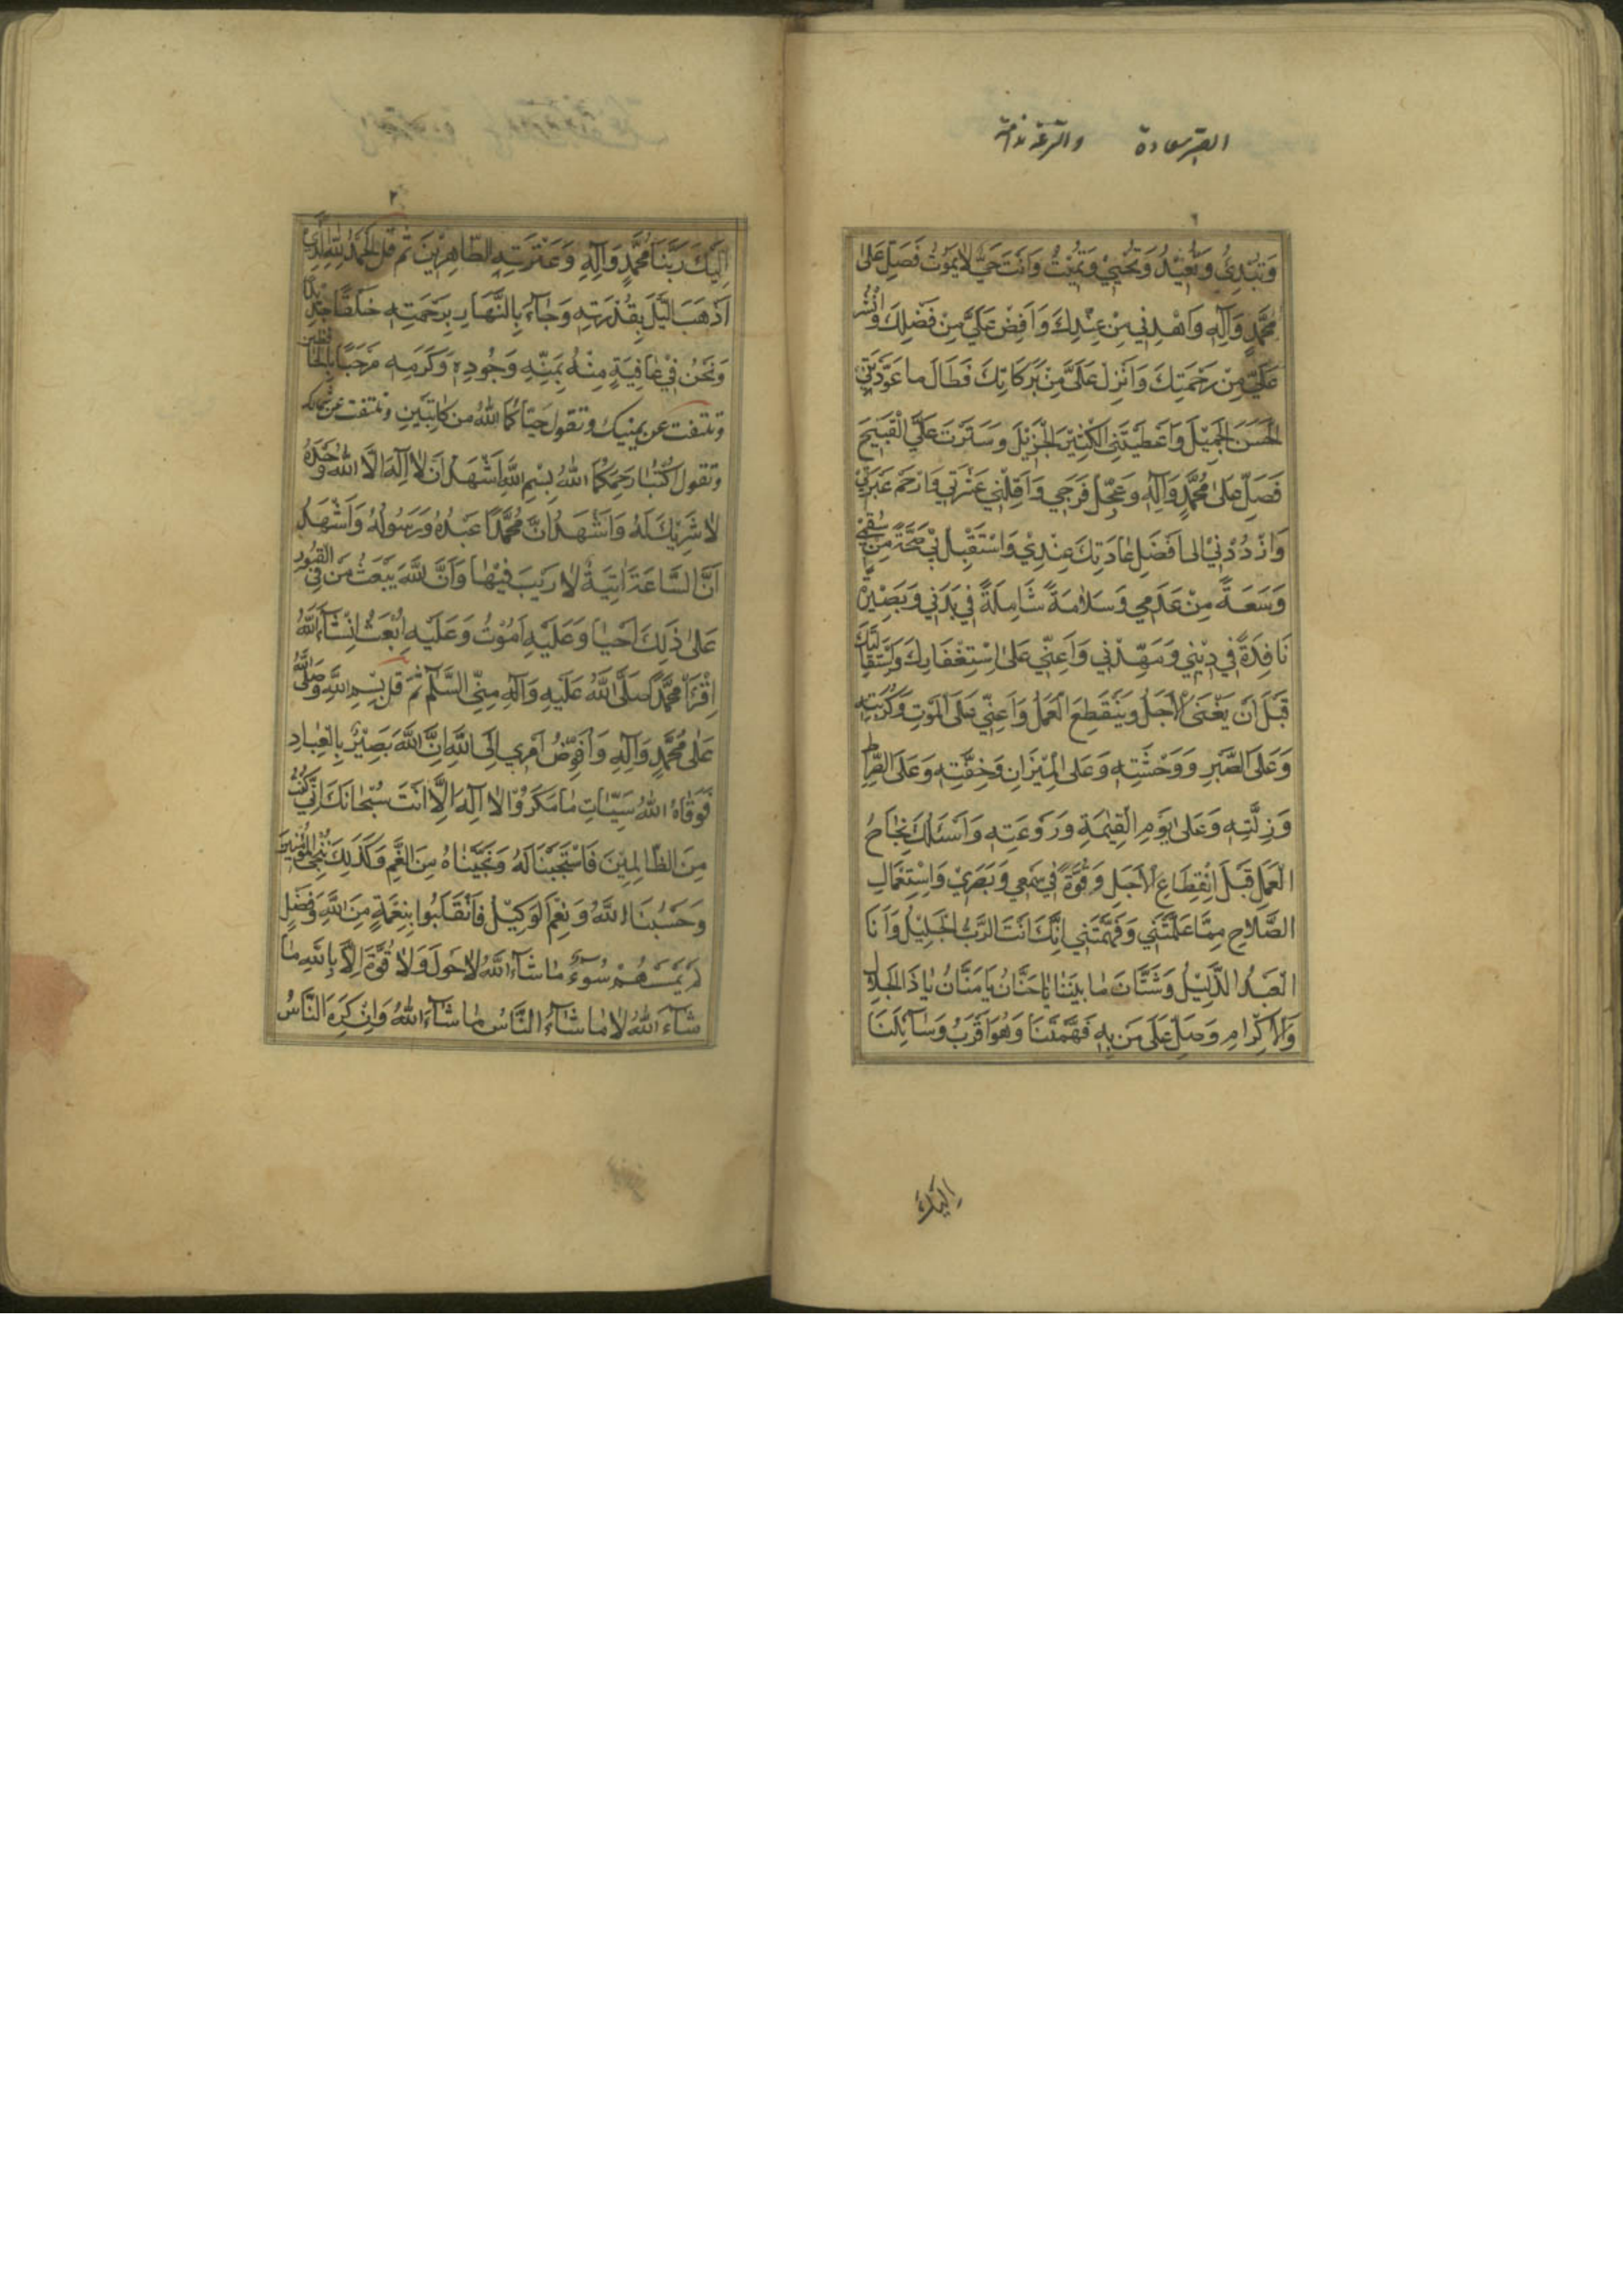 وَتُبْدِئُ وَتُعِيْدُ وَتُحْيِيْ وَتُمِيْتُ وَاَنْتَ حَيٌّ لَا يَمُوْتُ فَصَلِّ عَلٰى
مُحَمَّدٍ وَآلِهِ وَاهْدِنِي مِنْ عِنْدِكَ وَاَفِضْ عَلَيَّ مِنْ فَضْلِكَ وَانْشُرْ
عَلَيَّ مِنْ رَحْمَتِكَ وَاَنْزِلْ عَلَيَّ مِنْ بَرَكَاتِكَ فَطَالَ مَا عَوَّدْتَنِي
الْحَسَنَ الْجَمِيْلَ وَاَعْطَيْتَنِي الْكَثِيْرَ الْجَزِيْلَ وَسَتَرْتَ عَلَيَّ الْقَبِيْحَ
فَصَلِّ عَلٰى مُحَمَّدٍ وَآلِهِ وَعَجِّلْ فَرَجِي وَاَقِلْنِي عَثْرَتِي وَارْحَمْ عَبْرَتِي
وَارْدُدْنِيْ اِلٰى اَفْضَلِ عَادَتِكَ عِنْدِيْ وَاسْتَقْبِلْ بِي صِحَّةً مِنْ سُقْمِي
وَسَعَةً مِنْ عَدَمِي وَسَلَامَةً شَامِلَةً فِي بَدَنِي وَبَصِيْرَةً
نَافِذَةً فِي دِيْنِي وَمَهِّدْنِي وَاَعِنِّي عَلَى اسْتِغْفَارِكَ وَاسْتِقَالَتِكَ
قَبْلَ اَنْ يَفْنَى الْاَجَلُ وَيَنْقَطِعَ الْعَمَلُ وَاَعِنِّي عَلَى الْمَوْتِ وَكُرْبَتِهِ
وَعَلَى الْقَبْرِ وَوَحْشَتِهِ وَعَلَى الْمِيْزَانِ وَخِفَّتِهِ وَعَلَى الصِّرَاطِ
وَزِلَّتِهِ وَعَلٰى يَوْمِ الْقِيٰمَةِ وَرَوْعَتِهِ وَاَسْئَلُكَ نَجَاحَ
الْعَمَلِ قَبْلَ انْقِطَاعِ الْاَجَلِ وَقُوَّةً فِي سَمْعِي وَبَصَرِيْ وَاسْتِعْمَالِ
الصَّلَاحِ مِمَّا عَلَّمْتَنِي وَفَهَّمْتَنِي اِنَّكَ اَنْتَ الرَّبُّ الْجَلِيْلُ وَاَنَا
الْعَبْدُ الذَّلِيْلُ وَشَتَّانَ مَا بَيْنَنَا يَا حَنَّانُ يَا مَنَّانُ يَا ذَا الْجَلَالِ
وَالْاِكْرَامِ وَصَلِّ عَلَى مَنْ بِهِ فَهَّمْتَنَا وَهُوَ اَقْرَبُ وَسَائِلِنَا
٢
اِلَيْكَ رَبَّنَا مُحَمَّدٍ وَآلِهِ وَعِتْرَتِهِ الطَّاهِرِيْنَ ثم قل الْحَمْدُ لِلّٰهِ الَّذِيْ
اَذْهَبَ اللَّيْلَ بِقُدْرَتِهِ وَجَاءَ بِالنَّهَارِ بِرَحْمَتِهِ خَلْقًا جَدِيْدًا
وَنَحْنُ فِيْ عَافِيَةٍ مِنْهُ بِمَنِّهِ وَجُوْدِهِ وَكَرَمِهِ مَرْحَبًا بِالْحَافِظَيْنِ
وتلتفت عن يمينك وتقول حَيَّاكُمَا اللهُ مِنْ كَاتِبَيْنِ وتلتفت عن شمالك
وتقول اُكْتُبَا رَحِمَكُمَا اللهُ بِسْمِ اللّٰهِ اَشْهَدُ اَنْ لَا اِلٰهَ اِلَّا اللهُ وَحْدَهُ
لَا شَرِيْكَ لَهُ وَاَشْهَدُ اَنَّ مُحَمَّدًا عَبْدُهُ وَرَسُولُهُ وَاَشْهَدُ
اَنَّ السَّاعَةَ اٰتِيَةٌ لَا رَيْبَ فِيْهَا وَاَنَّ اللّٰهَ يَبْعَثُ مَنْ فِي الْقُبُوْرِ
عَلٰى ذٰلِكَ اَحْيَا وَعَلَيْهِ اَمُوْتُ وَعَلَيْهِ اُبْعَثُ اِنْ شَآءَ اللّٰهُ
اِقْرَاٰ مُحَمَّدًا صَلَّى اللهُ عَلَيْهِ وَآلِهِ مِنِّي السَّلَامَ ثم قل بِسْمِ اللّٰهِ وَصَلَّى اللّٰهُ
عَلٰى مُحَمَّدٍ وَآلِهِ وَاُفَوِّضُ اَمْرِي اِلَى اللّٰهِ اِنَّ اللّٰهَ بَصِيْرٌ بِالْعِبَادِ
فَوَقَاهُ اللهُ سَيِّئَاتِ مَا مَكَرُوا لَا اِلٰهَ اِلَّا اَنْتَ سُبْحَانَكَ اِنِّي كُنْتُ
مِنَ الظَّالِمِيْنَ فَاسْتَجَبْنَا لَهُ وَنَجَّيْنَاهُ مِنَ الْغَمِّ وَكَذٰلِكَ نُنْجِي الْمُؤْمِنِيْنَ
وَحَسْبُنَا اللهُ وَنِعْمَ الْوَكِيْلُ فَانْقَلَبُوا بِنِعْمَةٍ مِنَ اللّٰهِ وَفَضْلٍ
لَمْ يَمْسَسْهُمْ سُوْءٌ مَا شَاءَ اللهُ لَا حَوْلَ وَلَا قُوَّةَ اِلَّا بِاللّٰهِ مَا
شَآءَ اللهُ لَا مَا شَآءَ النَّاسُ مَا شَآءَ اللهُ وَاِنْ كَرِهَ النَّاسُ